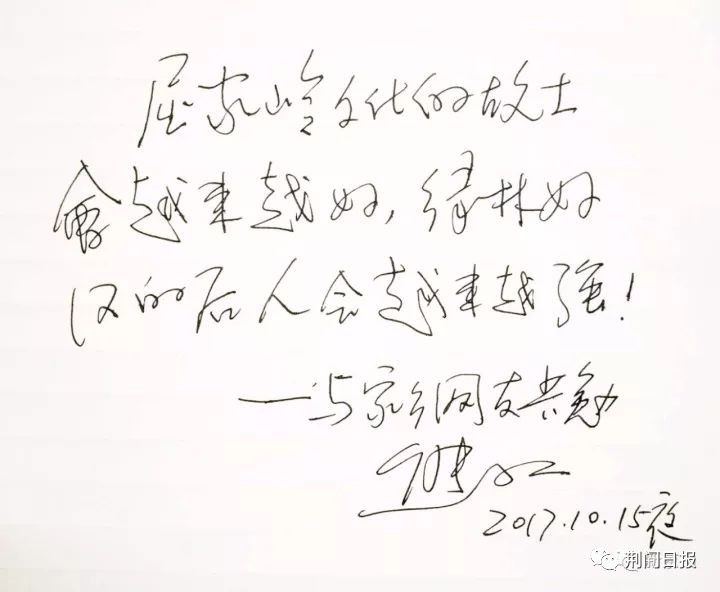 屈家岭文化的故土
会越来越好,绿林好
汉的后人会越来越强!
—与家乡网友共勉
2017.10.15夜
荆门日报